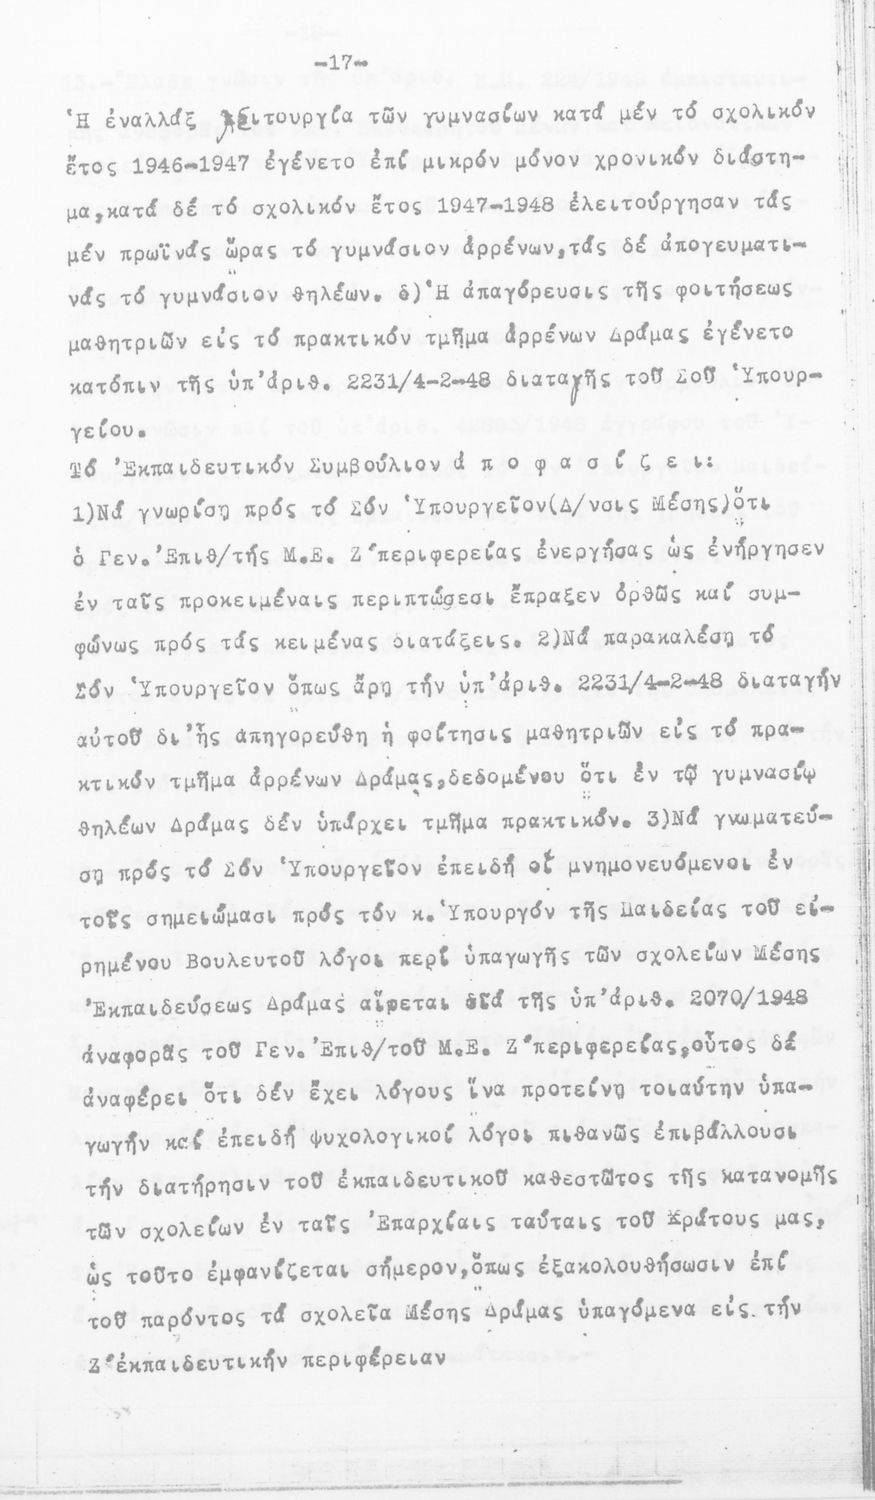 -17-
Ἡ ἐναλλάξ λειτουργία τῶν γυμνασίων κατά μέν τό σχολικόν
ἔτος 1946-1947 ἐγένετο ἐπί μικρόν μόνον χρονικόν διάστη-
μα,κατά δέ τό σχολικόν ἔτος 1947-1948 ἐλειτούργησαν τάς
μέν πρωϊνάς ὥρας τό γυμνάσιον ἀρρένων,τάς δέ ἀπογευματι-
νάς τό γυμνάσιον θηλέων. δ)Ἡ ἀπαγόρευσις τῆς φοιτήσεως
μαθητριῶν είς τό πρακτικόν τμῆμα ἀρρένων Δράμας ἐγένετο
κατόπιν τῆς ὑπ'ἀριθ. 2231/4-2-48 διαταγῆς τοῦ Σοῦ Ὑπουρ-
γείου.
Τό Ἐκπαιδευτικόν Συμβούλιον ἀ π ο φ α σ ί ζ ε ι:
1)Νά γνωρίσῃ πρός τό Σόν Ὑπουργεῖον(Δ/νσις Μέσης)ὅτι
ὁ Γεν.Ἐπιθ/τής Μ.Ε. Ζ΄περιφερείας ἐνεργήσας ὡς ἐνήργησεν
ἐν ταῖς προκειμέναις περιπτώσεσι ἔπραξεν ὀρθῶς καί συμ-
φώνως πρός τάς κειμένας διατάξεις. 2)Νά παρακαλέσῃ τό
Σόν Ὑπουργεῖον ὅπως ἄρῃ τήν ὑπ'ἀριθ. 2231/4-2-48 διαταγήν
αὐτοῦ δι'ἧς ἀπηγορεύθη ἡ φοίτησις μαθητριῶν εἰς τό πρα-
κτικόν τμῆμα ἀρρένων Δράμας,δεδομένου ὅτι ἐν τῷ γυμνασίῳ
θηλέων Δράμας δέν ὑπάρχει τμῆμα πρακτικόν. 3)Νά γνωματεύ-
σῃ πρός τό Σόν Ὑπουργεῖον ἐπειδή οἱ μνημονευόμενοι ἐν
τοῖς σημειώμασι πρός τόν κ.Ὑπουργόν τῆς Παιδείας τοῦ εἰ-
ρημένου Βουλευτοῦ λόγοι περί ὑπαγωγῆς τῶν σχολείων Μέσης
Ἐκπαιδεύσεως Δράμας αἴρεται διά τῆς ὑπ'ἀριθ. 2070/1948
ἀναφορᾶς τοῦ Γεν.Ἐπιθ/τοῦ Μ.Ε. Ζ΄περιφερείας,οὗτος δέ
ἀναφέρει ὅτι δέν ἔχει λόγους ἵνα προτείνῃ τοιαύτην ὑπα-
γωγήν καί ἐπειδή ψυχολογικοί λόγοι πιθανῶς ἐπιβάλλουσι
τήν διατήρησιν τοῦ ἐκπαιδευτικοῦ καθεστῶτος τῆς κατανομῆς
τῶν σχολείων ἐν ταῖς Ἐπαρχίαις ταύταις τοῦ Κράτους μας,
ὡς τοῦτο ἐμφανίζεται σήμερον,ὅπως ἐξακολουθήσωσιν ἐπί
τοῦ παρόντος τά σχολεῖα Μέσης Δράμας ὑπαγόμενα εἰς τήν
Ζ΄ἐκπαιδευτικήν περιφέρειαν